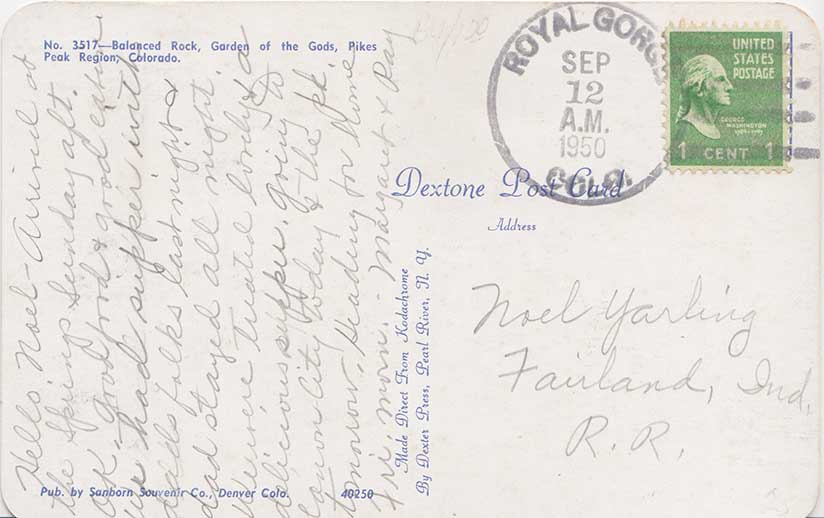 No. 3517—Balanced Rock, Garden of the Gods, Pikes
Peak Region, Colorado.
Hello Noel - Arrived at
the Springs Sunday aft.
OK - good food & good
we had supper with
folks last night &
dad stayed all night.
We were treated lovely & a
delicious supper. Going to
Canon City today & to the Pk.
tomorrow, Heading for home
Fri. morn. - Margaret & Ray
ROYAL GORGE
SEP
12
A.M.
1950
COLO.
UNITED
STATES
POSTAGE
GEORGE
WASHINGTON
1789-1797
1 CENT 1
Dextone Post Card
Address
Made Direct From Kodachrome
By Dexter Press, Pearl River, N. Y.
Noel Yarling
Fairland, Ind.
R. R.
Pub. by Sanborn Souvenir Co., Denver Colo. 40250